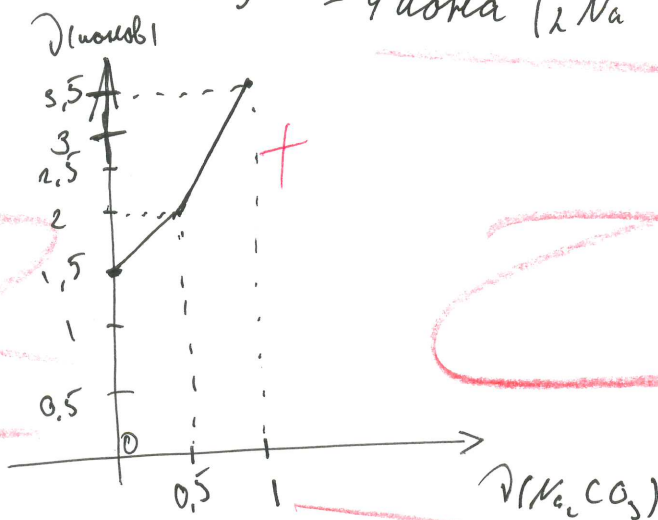 = 4 иона (2 Na
ν(ионов)
3,5
3
2,5
2
1,5
1
0,5
0
0,5 1 ν(Na₂CO₃)